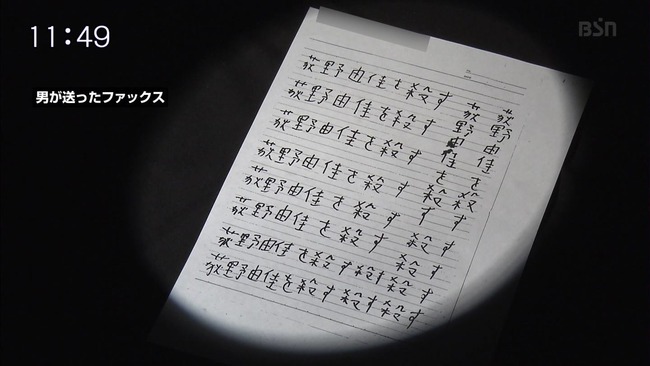 11:49
BSN
男が送ったファックス
荻野由佳を殺す
荻野由佳を殺す
荻野由佳を殺す
荻野由佳を殺す
荻野由佳を殺す
荻野由佳を殺す
荻野由佳を殺す殺す殺す
荻野由佳を殺す殺す殺す
荻野由佳を殺す
荻野由佳を殺す
殺す
殺す